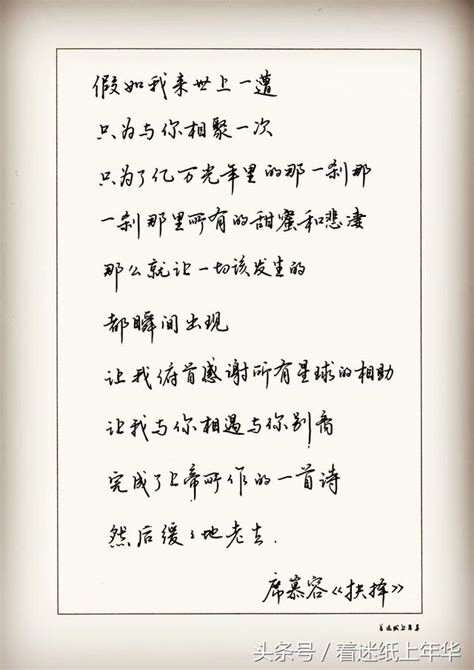 假如我来世上一遭
只为与你相聚一次
只为了亿万光年里的那一刹那
一刹那里所有的甜蜜和悲凄
那么就让一切该发生的
都瞬间出现
让我俯首感谢所有星球的相助
让我与你相遇与你别离
完成了上帝所作的一首诗
然后缓々地老去.
席慕容《抉择》
着迷纸上年华
头条号/着迷纸上年华